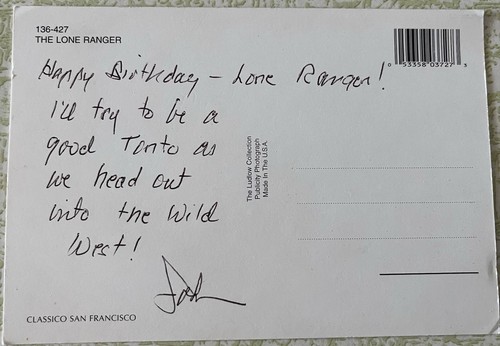 136-427
THE LONE RANGER
0 53358 03727 3
Happy Birthday - Lone Ranger!
I'll try to be a
good Tonto as
we head out
into the Wild
West!
Josh
The Ludlow Collection
Publicity Photograph
Made In The U.S.A.
CLASSICO SAN FRANCISCO